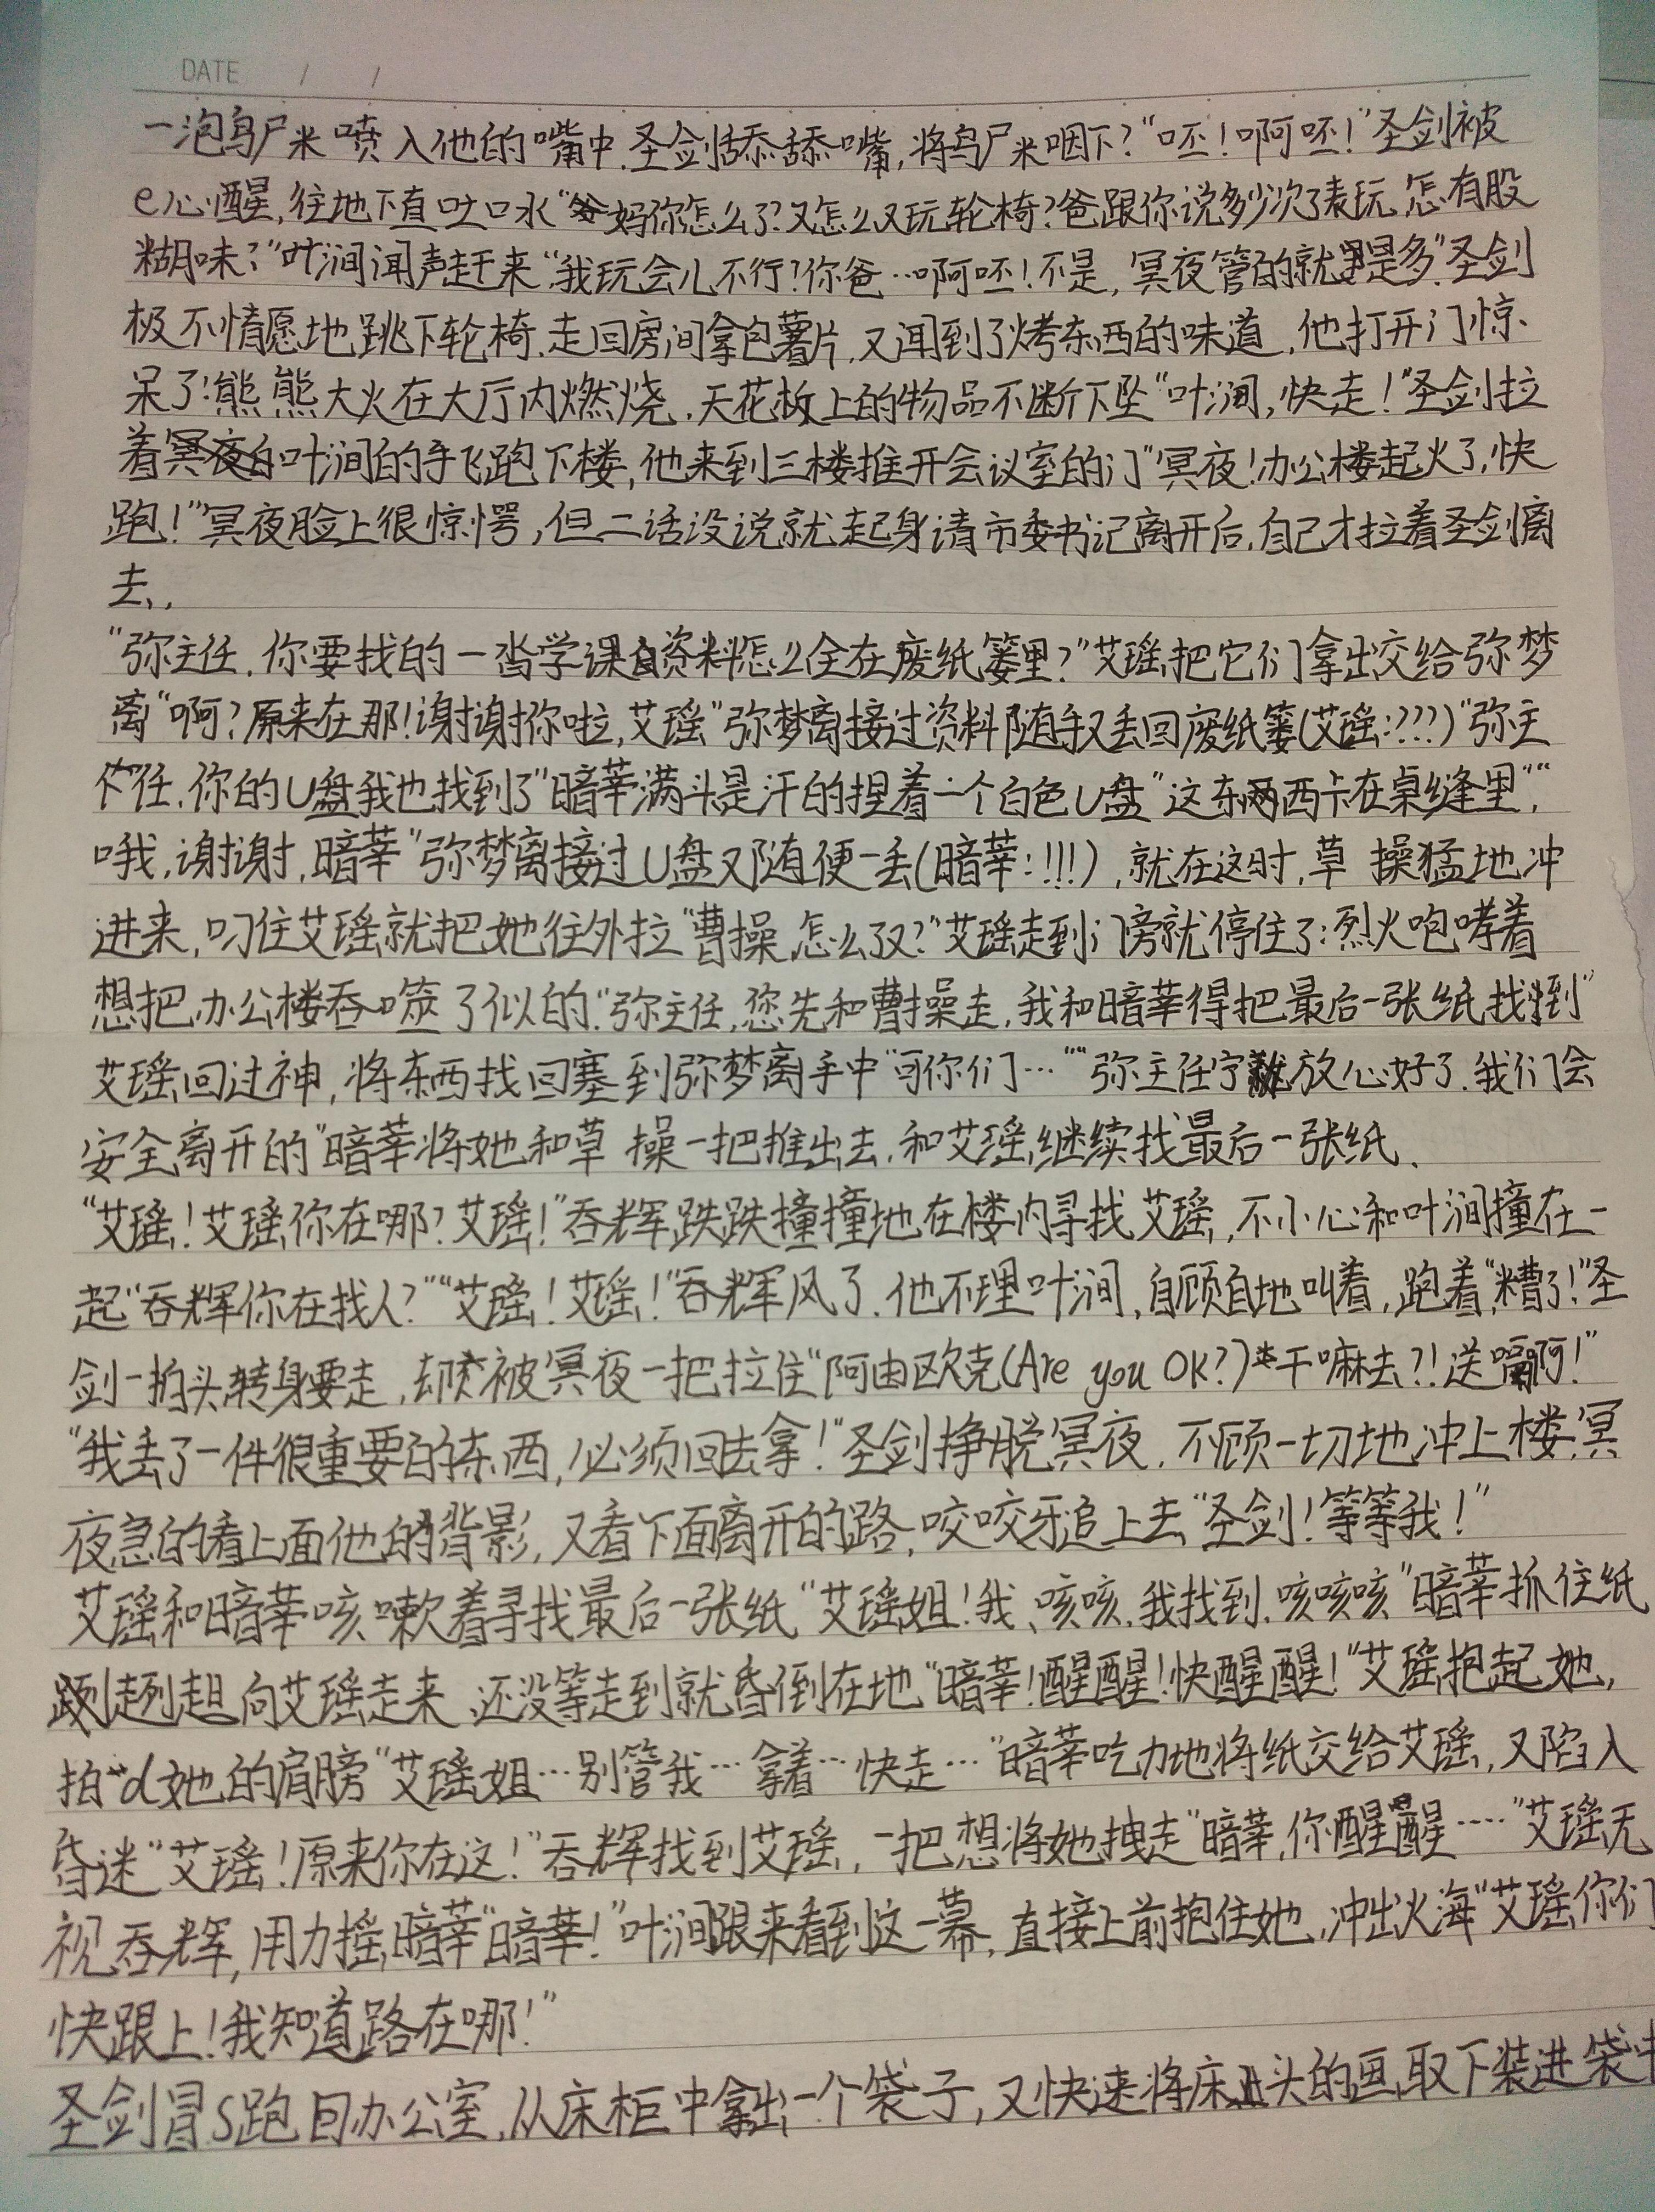 DATE / /
一泡鸟尸米喷入他的嘴中.圣剑舔舔嘴,将鸟尸米咽下?"呸!啊呸!"圣剑被
e心醒,往地下直吐口水"妈你怎么了?又怎么又玩轮椅?爸跟你说多少次了表玩,怎有股
糊味?"叶涧闻声赶来"我玩会儿不行?你爸…啊呸!不是,冥夜管的就是多"圣剑
极不情愿地跳下轮椅.走回房间拿包薯片,又闻到了烤东西的味道,他打开门惊
呆了:熊熊大火在大厅内燃烧.天花板上的物品不断下坠"叶涧,快走!"圣剑拉
着叶涧的手飞跑下楼,他来到三楼推开会议室的门"冥夜!办公楼起火了,快
跑!"冥夜脸上很惊愕,但二话没说就起身请市委书记离开后,自己才拉着圣剑离
去,
"弥主任,你要找的一沓学课资料怎么全在废纸篓里?"艾瑶把它们拿出交给弥梦
离"啊?原来在那!谢谢你啦,艾瑶"弥梦离接过资料随手又丢回废纸篓(艾瑶:???)"弥主
任,你的U盘我也找到了"暗莘满头是汗的捏着一个白色U盘"这东西卡在桌缝里""
哦,谢谢,暗莘"弥梦离接过U盘又随便一丢(暗莘:!!!),就在这时,草 操猛地冲
进来,叼住艾瑶就把她往外拉"曹操,怎么了?"艾瑶走到门旁就停住了:烈火咆哮着
想把办公楼吞噬了似的."弥主任,您先和曹操走,我和暗莘得把最后一张纸找到"
艾瑶回过神,将东西找回塞到弥梦离手中"可你们…""弥主任宁放心好了.我们会
安全离开的"暗莘将她和草 操一把推出去.和艾瑶继续找最后一张纸.
"艾瑶!艾瑶你在哪?艾瑶!"吞辉跌跌撞撞地在楼内寻找艾瑶,不小心和叶涧撞在一
起"吞辉你在找人?""艾瑶!艾瑶!"吞辉风了.他不理叶涧,自顾自地叫着,跑着"糟了!"圣
剑一拍头转身要走,却被冥夜一把拉住"阿由欧克(Are you OK?)*干嘛去?!送啊!"
"我丢了一件很重要的东西,必须回去拿!"圣剑挣脱冥夜.不顾一切地冲上楼,冥
夜急的看上面他的背影,又看下面离开的路,咬咬牙追上去"圣剑!等等我!"
艾瑶和暗莘咳嗽着寻找最后一张纸"艾瑶姐!我、咳咳,我找到、咳咳咳"暗莘抓住纸
趔趄向艾瑶走来,还没等走到就昏倒在地"暗莘!醒醒!快醒醒!"艾瑶抱起她,
拍d她的肩膀"艾瑶姐…别管我…拿着…快走…"暗莘吃力地将纸交给艾瑶,又陷入
昏迷"艾瑶!原来你在这!"吞辉找到艾瑶,一把想将她拽走"暗莘,你醒醒……"艾瑶无
视吞辉,用力摇暗莘"暗莘!"叶涧跟来看到这一幕,直接上前抱住她,冲出火海"艾瑶,你们
快跟上!我知道路在哪!"
圣剑冒s跑回办公室,从床柜中拿出一个袋子,又快速将床头的画取下装进袋中